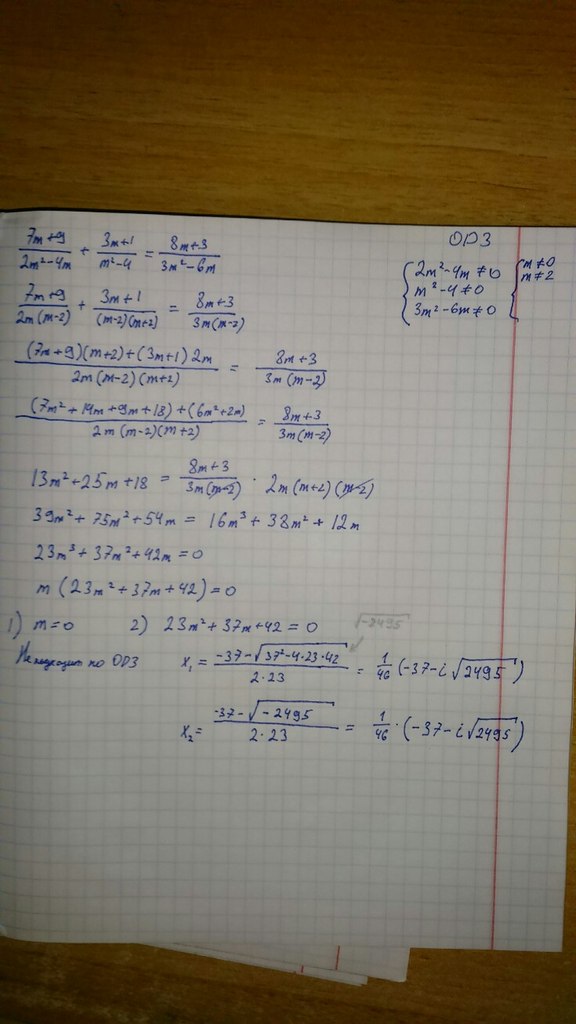 (7m+9)/(2m²-4m) + (3m+1)/(m²-4) = (8m+3)/(3m²-6m)
ОДЗ
{2m²-4m≠0
m²-4≠0
3m²-6m≠0
{m≠0
m≠2
(7m+9)/(2m(m-2)) + (3m+1)/((m-2)(m+2)) = (8m+3)/(3m(m-2))
((7m+9)(m+2)+(3m+1)2m)/(2m(m-2)(m+2)) = (8m+3)/(3m(m-2))
((7m²+14m+9m+18)+(6m²+2m))/(2m(m-2)(m+2)) = (8m+3)/(3m(m-2))
13m²+25m+18 = (8m+3)/(3m(m-2)) · 2m(m+2)(m-2)
39m²+75m²+54m = 16m³+38m²+12m
23m³+37m²+42m=0
m(23m²+37m+42)=0
1) m=0 2) 23m²+37m+42=0
√-2495
Не подходит по ОДЗ
x₁ = (-37-√(37²-4·23·42))/(2·23) = 1/46 (-37-i√2495)
x₂ = (-37-√-2495)/(2·23) = 1/46 · (-37-i√2495)